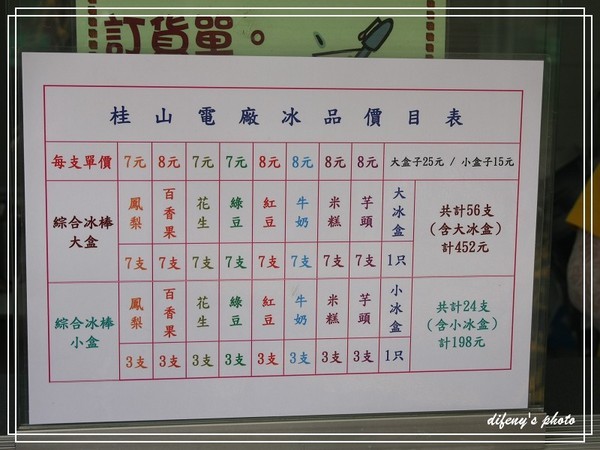 訂貨單。
桂山電廠冰品價目表
每支單價 7元 8元 7元 7元 8元 8元 8元 8元 大盒子25元 / 小盒子15元
綜合冰棒大盒 鳳梨 百香果 花生 綠豆 紅豆 牛奶 米糕 芋頭 大冰盒 共計56支（含大冰盒）計452元
7支 7支 7支 7支 7支 7支 7支 7支 1只
綜合冰棒小盒 鳳梨 百香果 花生 綠豆 紅豆 牛奶 米糕 芋頭 小冰盒 共計24支（含小冰盒）計198元
3支 3支 3支 3支 3支 3支 3支 3支 1只
difeny's photo